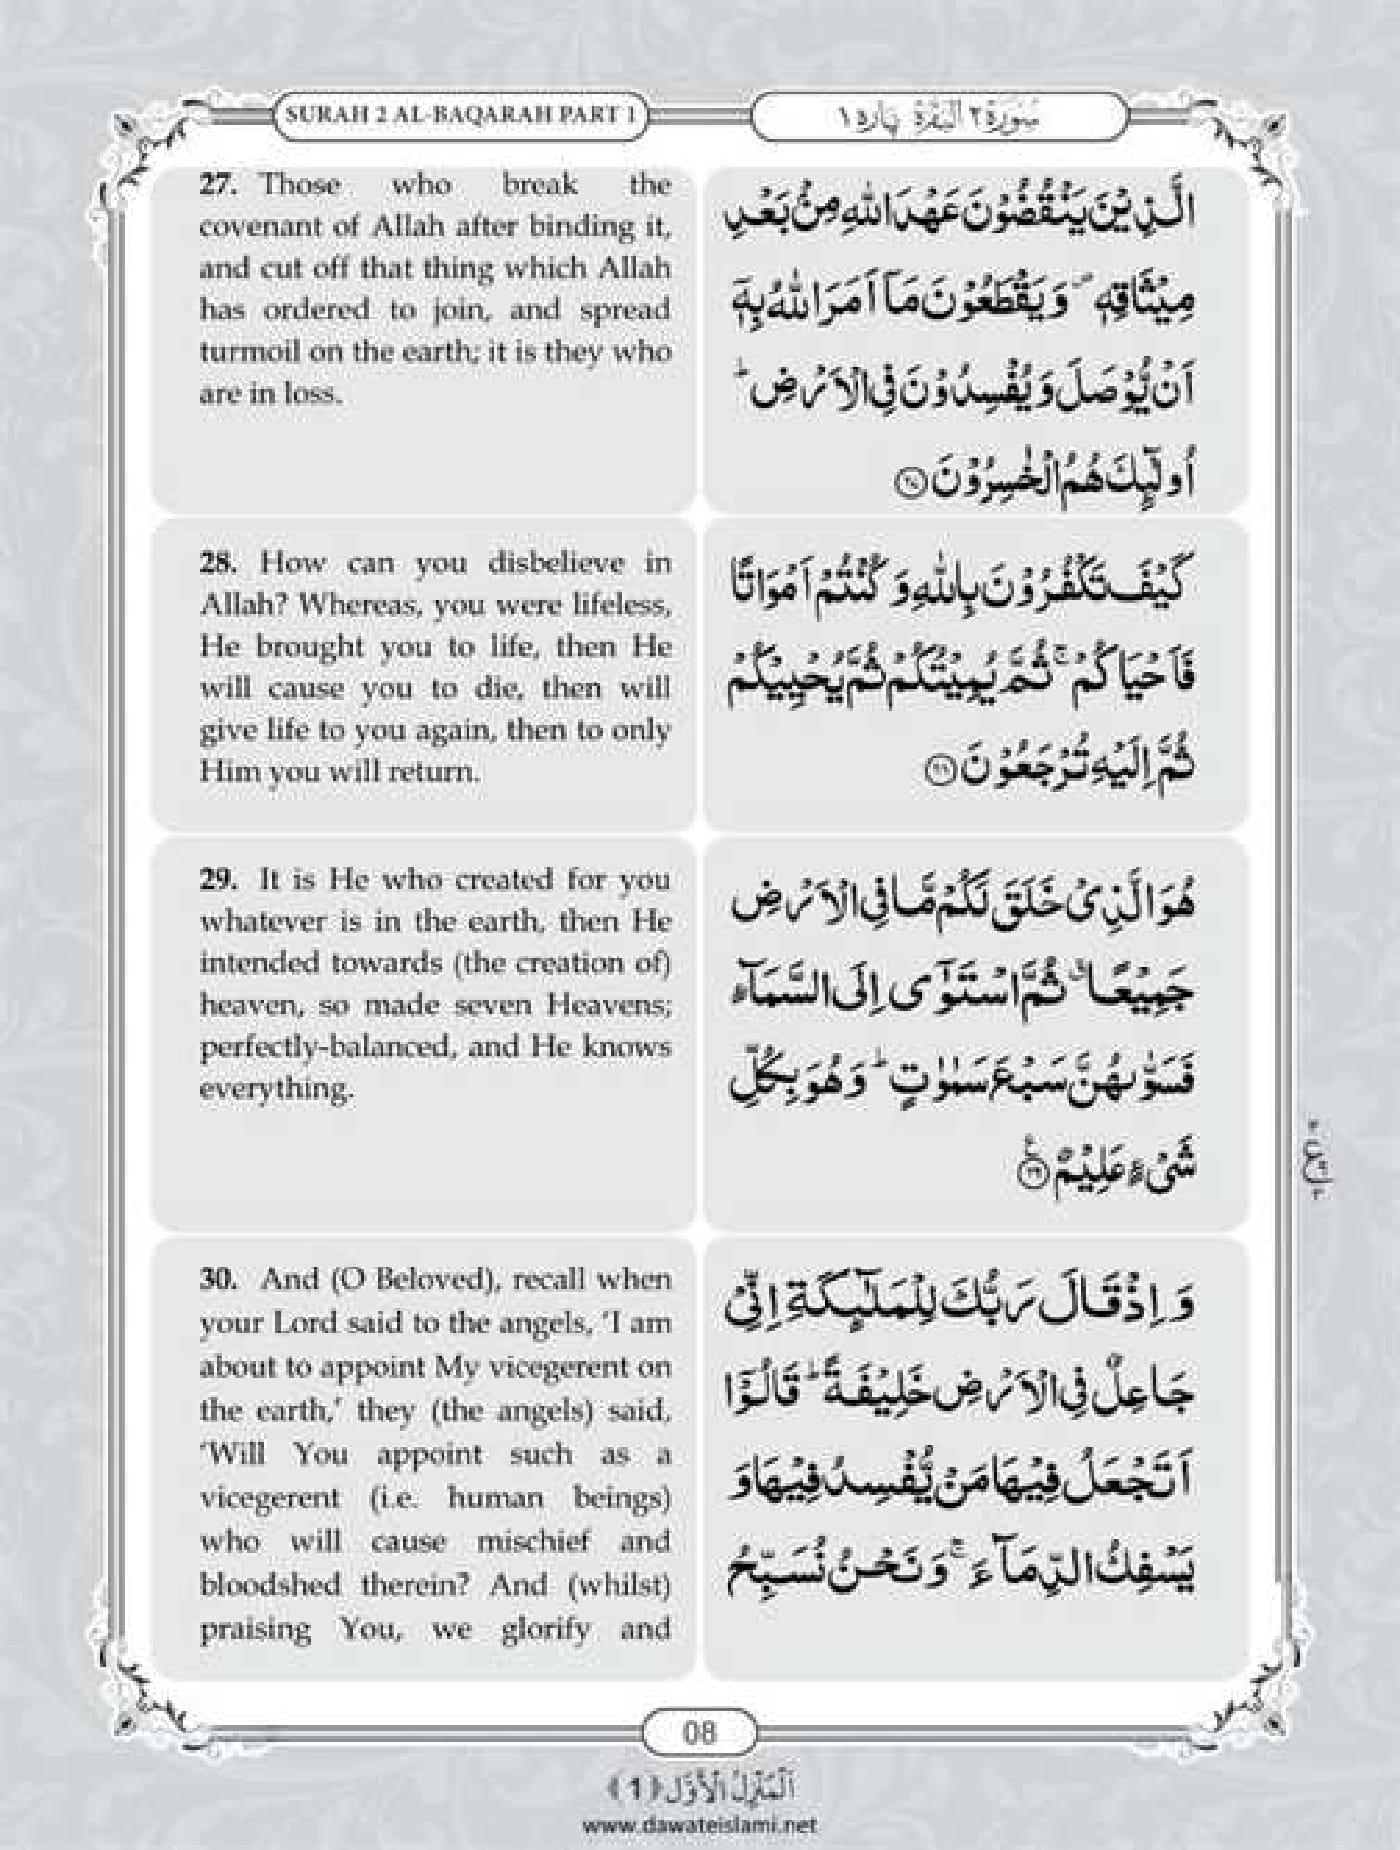 SURAH 2 AL-BAQARAH PART 1
سُوْرَةُ ٢ اَلْبَقَرَة پارہ ١
27. Those who break the
covenant of Allah after binding it,
and cut off that thing which Allah
has ordered to join, and spread
turmoil on the earth; it is they who
are in loss.
الَّذِيْنَ يَنْقُضُوْنَ عَهْدَ اللّٰهِ مِنْۢ بَعْدِ
مِيْثَاقِهٖ ۪ وَيَقْطَعُوْنَ مَاۤ اَمَرَ اللّٰهُ بِهٖۤ
اَنْ يُّوْصَلَ وَيُفْسِدُوْنَ فِي الْاَرْضِ ؕ
اُولٰٓئِكَ هُمُ الْخٰسِرُوْنَ ﴿۲۷﴾
28. How can you disbelieve in
Allah? Whereas, you were lifeless,
He brought you to life, then He
will cause you to die, then will
give life to you again, then to only
Him you will return.
كَيْفَ تَكْفُرُوْنَ بِاللّٰهِ وَ كُنْتُمْ اَمْوَاتًا
فَاَحْيَاكُمْ ۚ ثُمَّ يُمِيْتُكُمْ ثُمَّ يُحْيِيْكُمْ
ثُمَّ اِلَيْهِ تُرْجَعُوْنَ ﴿۲۸﴾
29. It is He who created for you
whatever is in the earth, then He
intended towards (the creation of)
heaven, so made seven Heavens;
perfectly-balanced, and He knows
everything.
هُوَ الَّذِيْ خَلَقَ لَكُمْ مَّا فِي الْاَرْضِ
جَمِيْعًا ۗ ثُمَّ اسْتَوٰۤى اِلَى السَّمَآءِ
فَسَوّٰىهُنَّ سَبْعَ سَمٰوٰتٍ ؕ وَهُوَ بِكُلِّ
شَيْءٍ عَلِيْمٌ ﴿۲۹﴾
30. And (O Beloved), recall when
your Lord said to the angels, ‘I am
about to appoint My vicegerent on
the earth,’ they (the angels) said,
‘Will You appoint such as a
vicegerent (i.e. human beings)
who will cause mischief and
bloodshed therein? And (whilst)
praising You, we glorify and
وَ اِذْ قَالَ رَبُّكَ لِلْمَلٰٓئِكَةِ اِنِّيْ
جَاعِلٌ فِي الْاَرْضِ خَلِيْفَةً ؕ قَالُوْۤا
اَتَجْعَلُ فِيْهَا مَنْ يُّفْسِدُ فِيْهَا وَ
يَسْفِكُ الدِّمَآءَ ۚ وَنَحْنُ نُسَبِّحُ
08
اَلْمَنْزِلُ الْاَوَّل ﴿1﴾
www.dawateislami.net